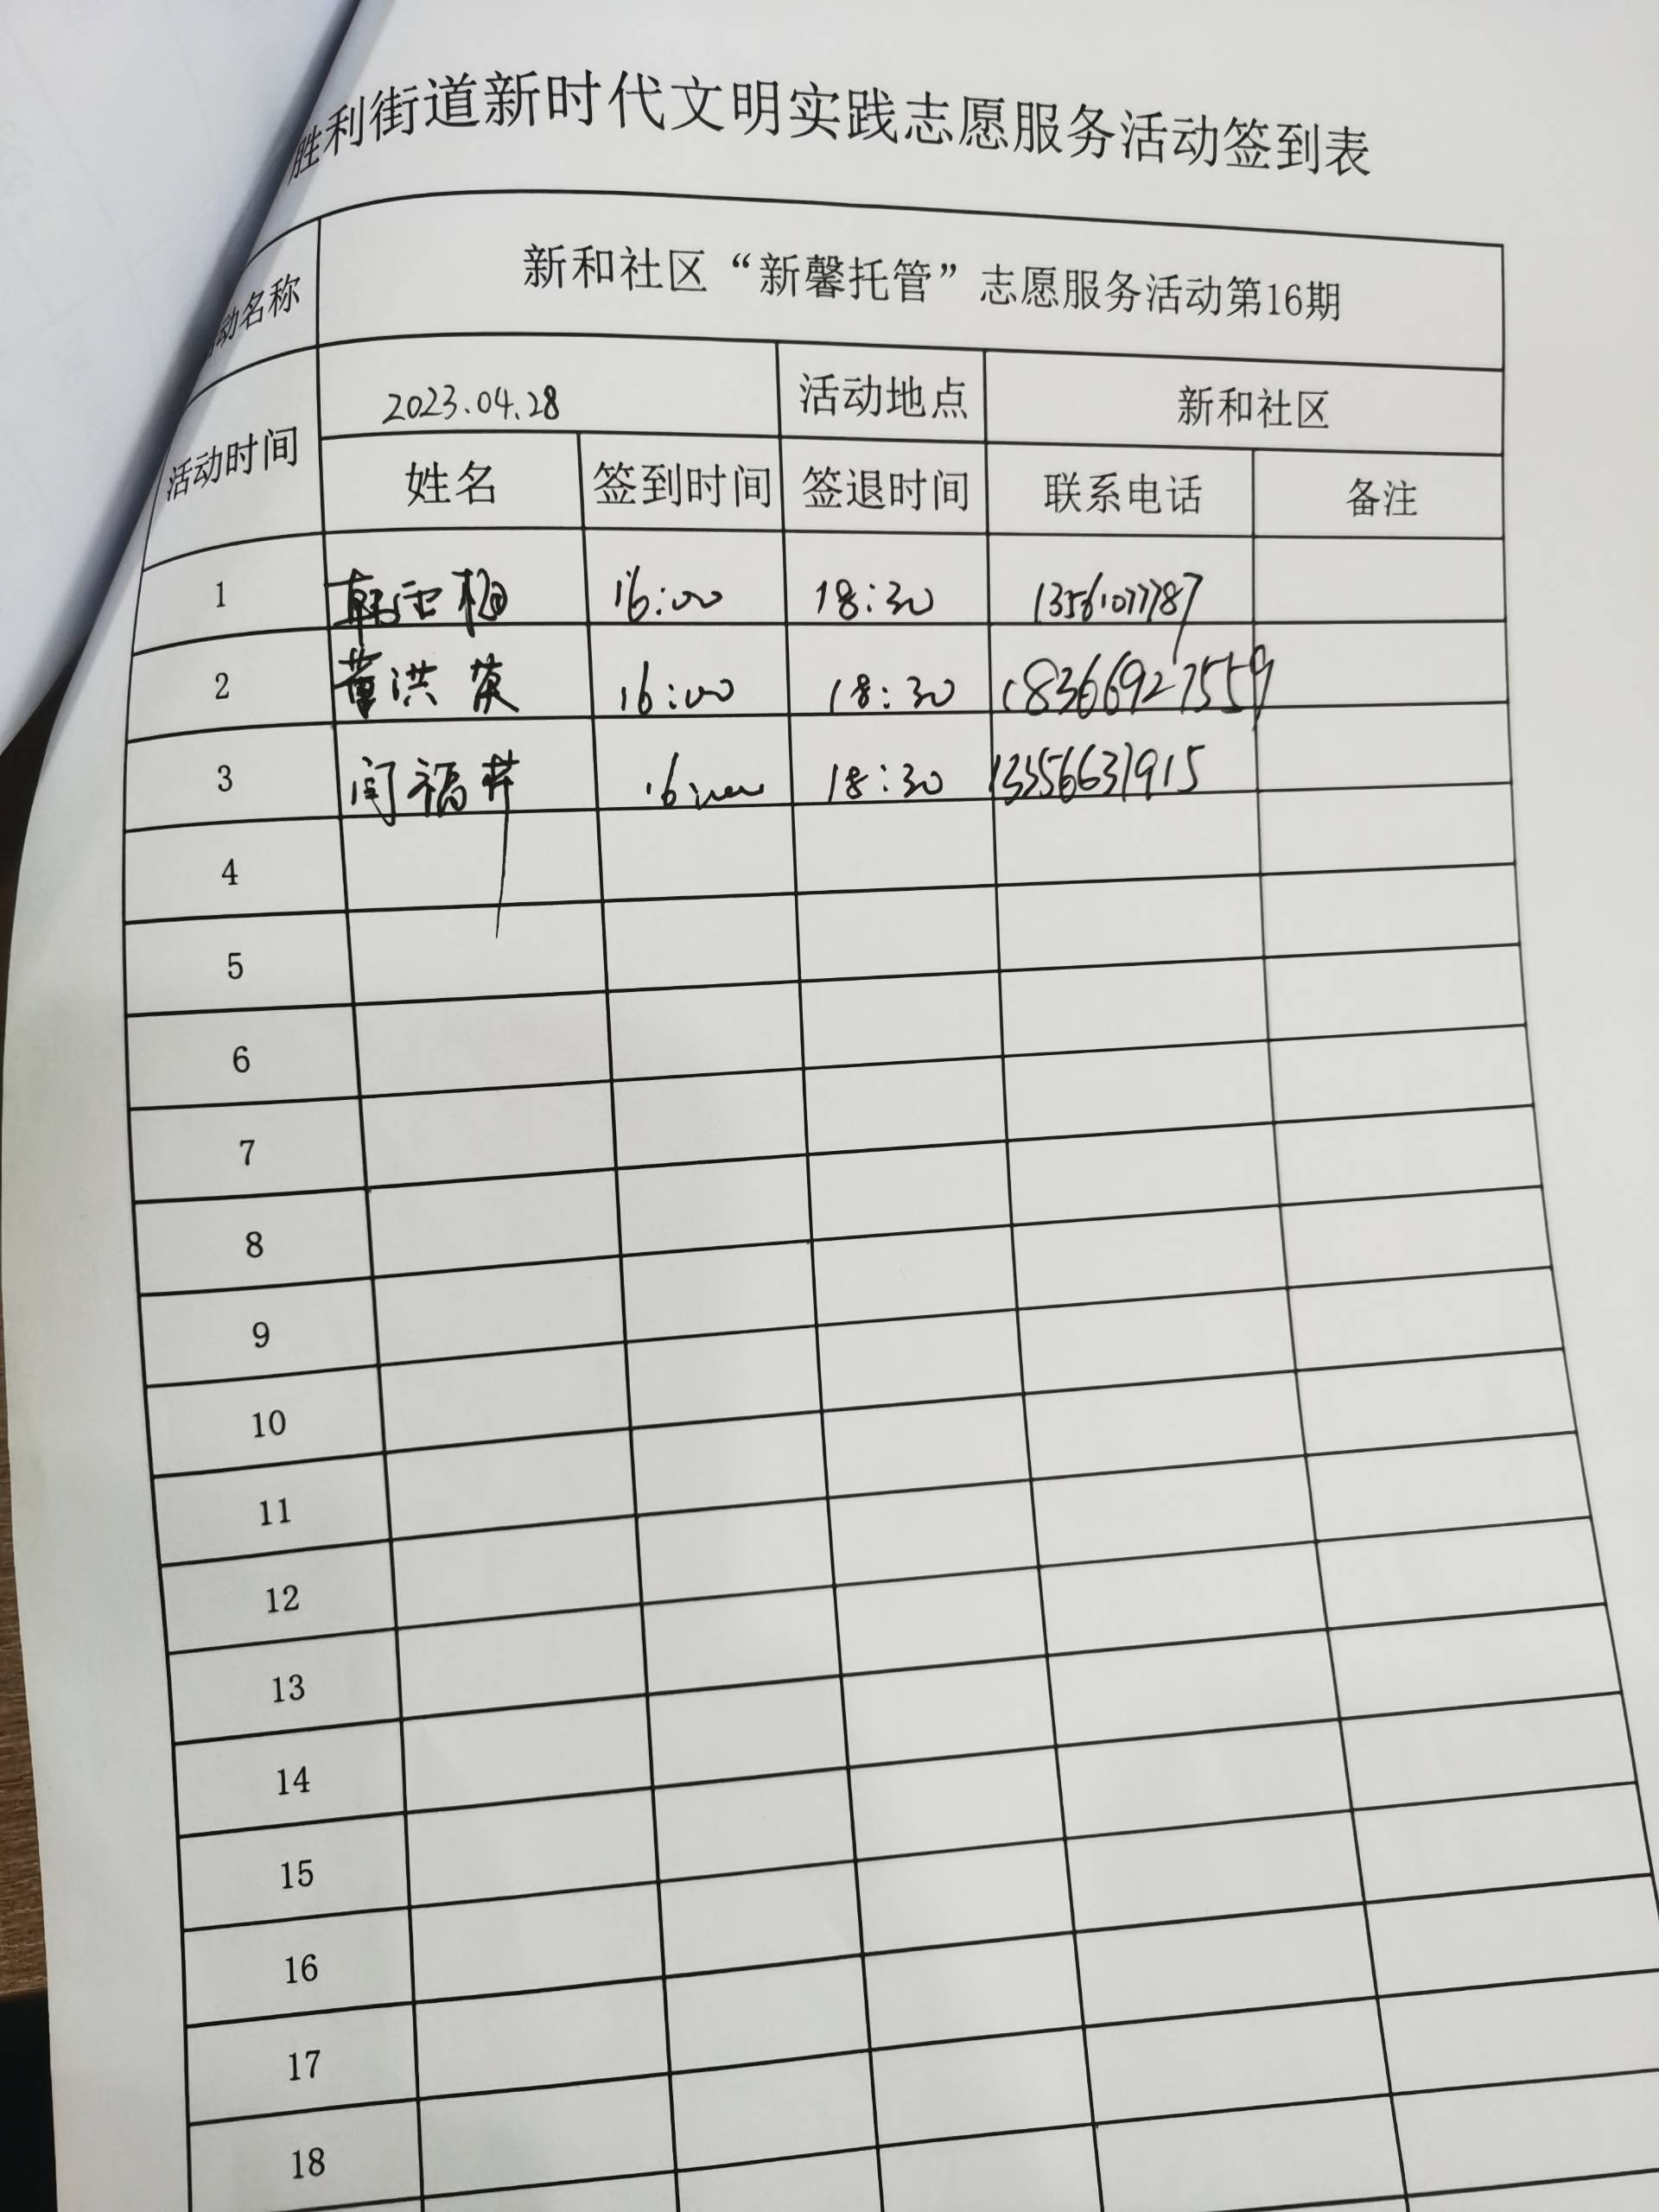 胜利街道新时代文明实践志愿服务活动签到表
动名称 新和社区“新馨托管”志愿服务活动第16期
活动时间 2023.04.28 活动地点 新和社区
姓名 签到时间 签退时间 联系电话 备注
1 16:00 18:30
2 董洪英 16:00 18:30 18366927559
3 闫福芹 16:00 18:30 13356631915
4
5
6
7
8
9
10
11
12
13
14
15
16
17
18